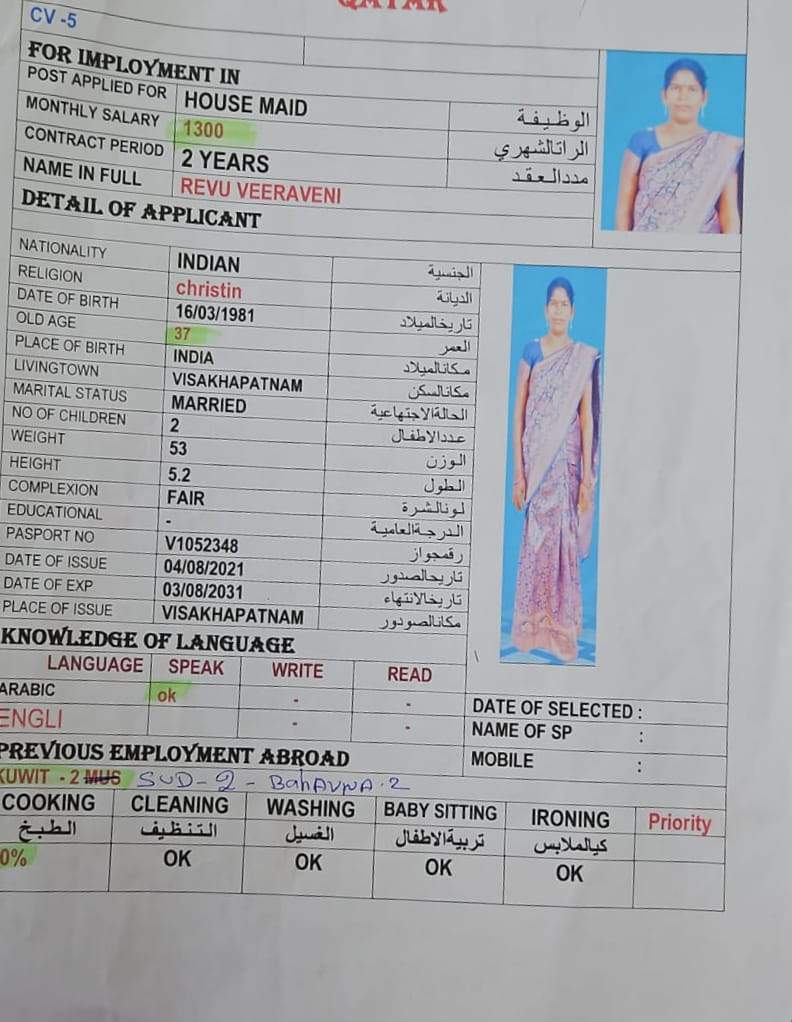 QATAR
CV -5
FOR IMPLOYMENT IN
POST APPLIED FOR HOUSE MAID الوظيفة
MONTHLY SALARY 1300 الراتالشهري
CONTRACT PERIOD 2 YEARS مددالعقد
NAME IN FULL REVU VEERAVENI
DETAIL OF APPLICANT
NATIONALITY INDIAN الجنسية
RELIGION christin الديانة
DATE OF BIRTH 16/03/1981 تاريخالميلاد
OLD AGE 37 العمر
PLACE OF BIRTH INDIA مكانالميلاد
LIVINGTOWN VISAKHAPATNAM مكانالسكن
MARITAL STATUS MARRIED الحالةالاجتهاعية
NO OF CHILDREN 2 عددالاطفال
WEIGHT 53 الوزن
HEIGHT 5.2 الطول
COMPLEXION FAIR لونالشرة
EDUCATIONAL - الدرجةالعامية
PASPORT NO V1052348 رقمجواز
DATE OF ISSUE 04/08/2021 تاريحالصدور
DATE OF EXP 03/08/2031 تاريخالانتهاء
PLACE OF ISSUE VISAKHAPATNAM مكانالصودور
KNOWLEDGE OF LANGUAGE
LANGUAGE SPEAK WRITE READ
ARABIC ok - -
ENGLI - -
DATE OF SELECTED :
NAME OF SP :
MOBILE :
PREVIOUS EMPLOYMENT ABROAD
KUWIT - 2 MUS SUD - 2 - BahAVNA . 2
COOKING CLEANING WASHING BABY SITTING IRONING Priority
الطبخ التنظيف الغسيل تربيةالاطفال كيالملابس
0% OK OK OK OK